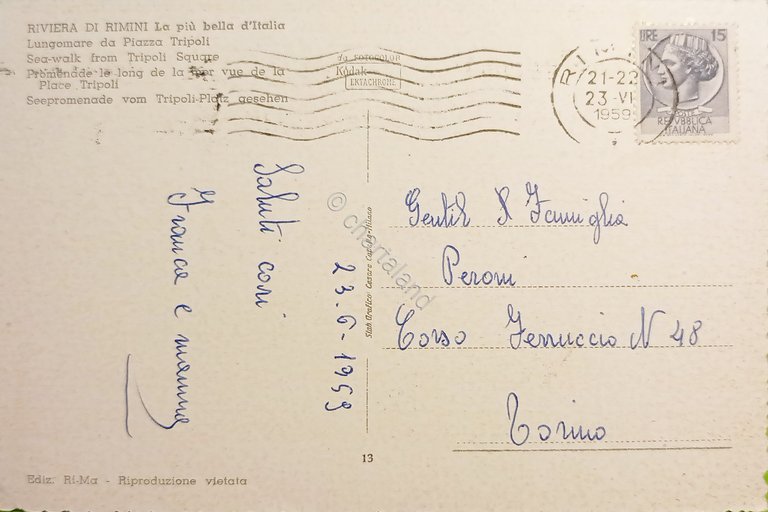 RIVIERA DI RIMINI La più bella d'Italia
Lungomare da Piazza Tripoli
Sea-walk from Tripoli Square
Promenade le long de la mer vue de la
Place Tripoli
Seepromenade vom Tripoli-Platz gesehen
da FOTOCOLOR
Kodak
EKTACHROME
RIMINI
21-22
23-VI
1959
LIRE 15
REPVBBLICA
ITALIANA
Saluti cari
Franca e mamma
23.6-1959
© chartaland
Stab Grafico Cesare Milano
Gentil Famiglia
Peroni
Corso Ferruccio N 48
Torino
13
Ediz. Ri-Ma - Riproduzione vietata